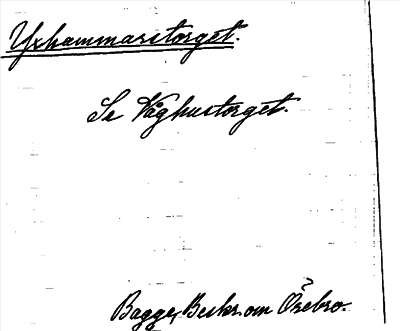 Yxhammarstorget.
Se Våghustorget.
Bagge, Beskr. om Örebro.